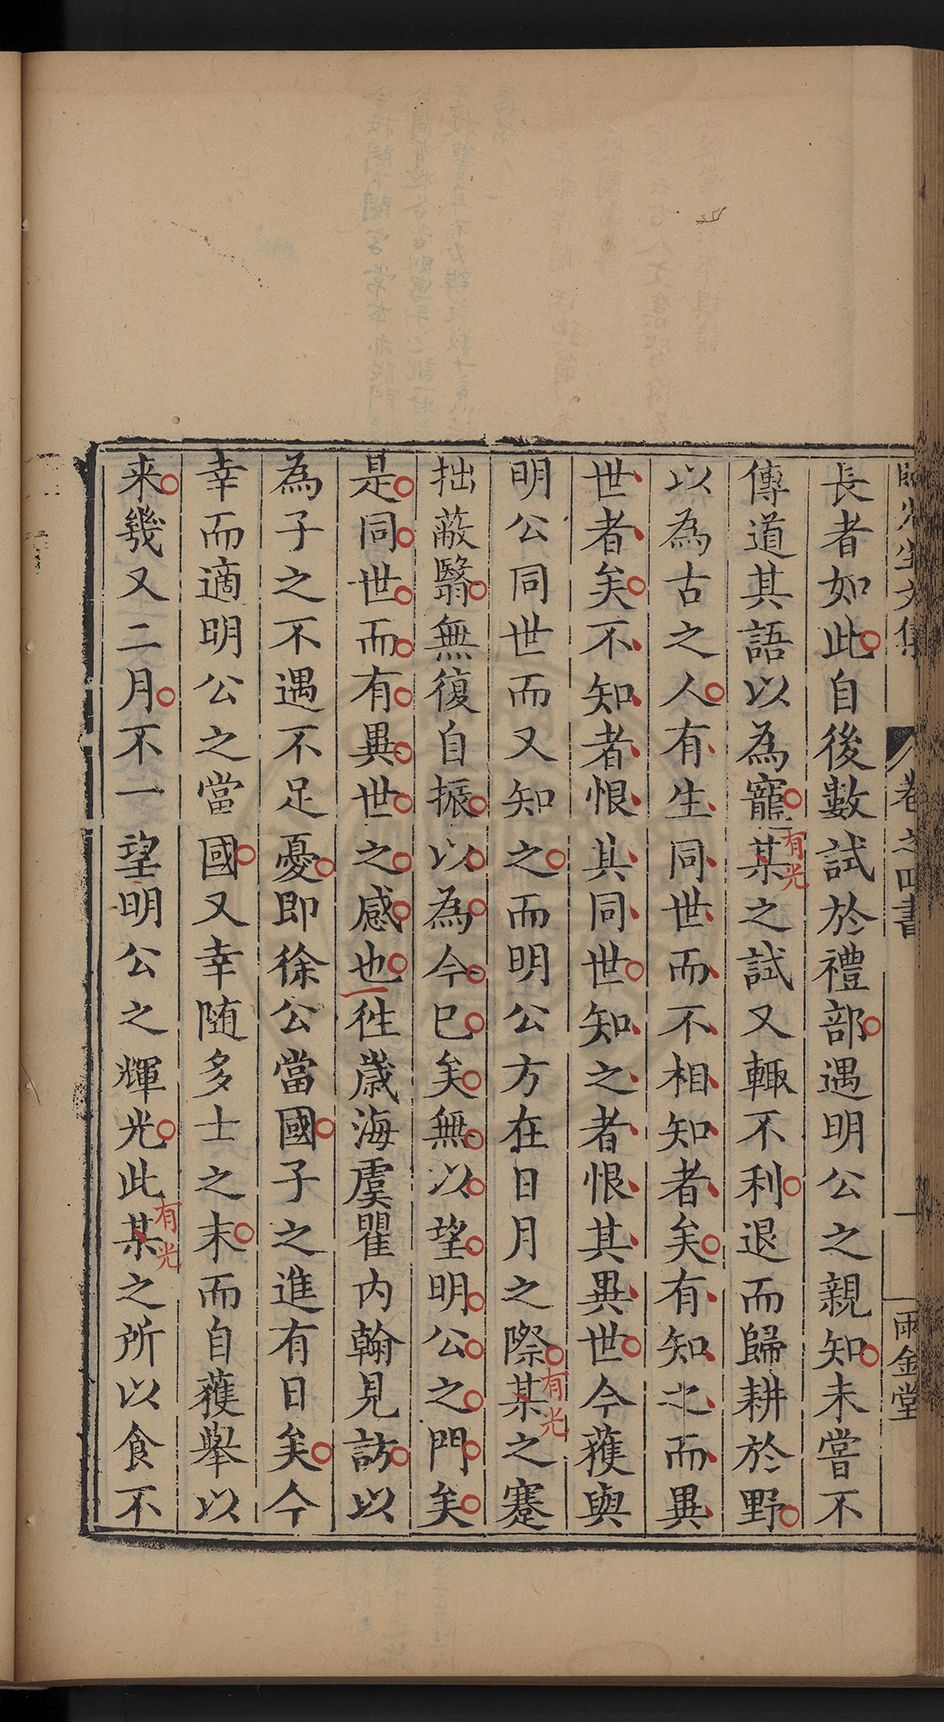 長者如此自後數試於禮部遇明公之親知未嘗不
傳道其語以為寵某之試又輙不利退而歸耕於野
有光
以為古之人有生同世而不相知者矣有知之而異
世者矣不知者恨其同世知之者恨其異世今獲與
明公同世而又知之而明公方在日月之際某之蹇
有光
拙蔽翳無復自振以為今已矣無以望明公之門矣
是同世而有異世之感也徃歲海虞瞿内翰見訪以
為子之不遇不足憂即徐公當國子之進有日矣今
幸而適明公之當國又幸随多士之末而自獲舉以
来幾又二月不一望明公之輝光此某之所以食不
有光
卷之四書
一
雨金堂